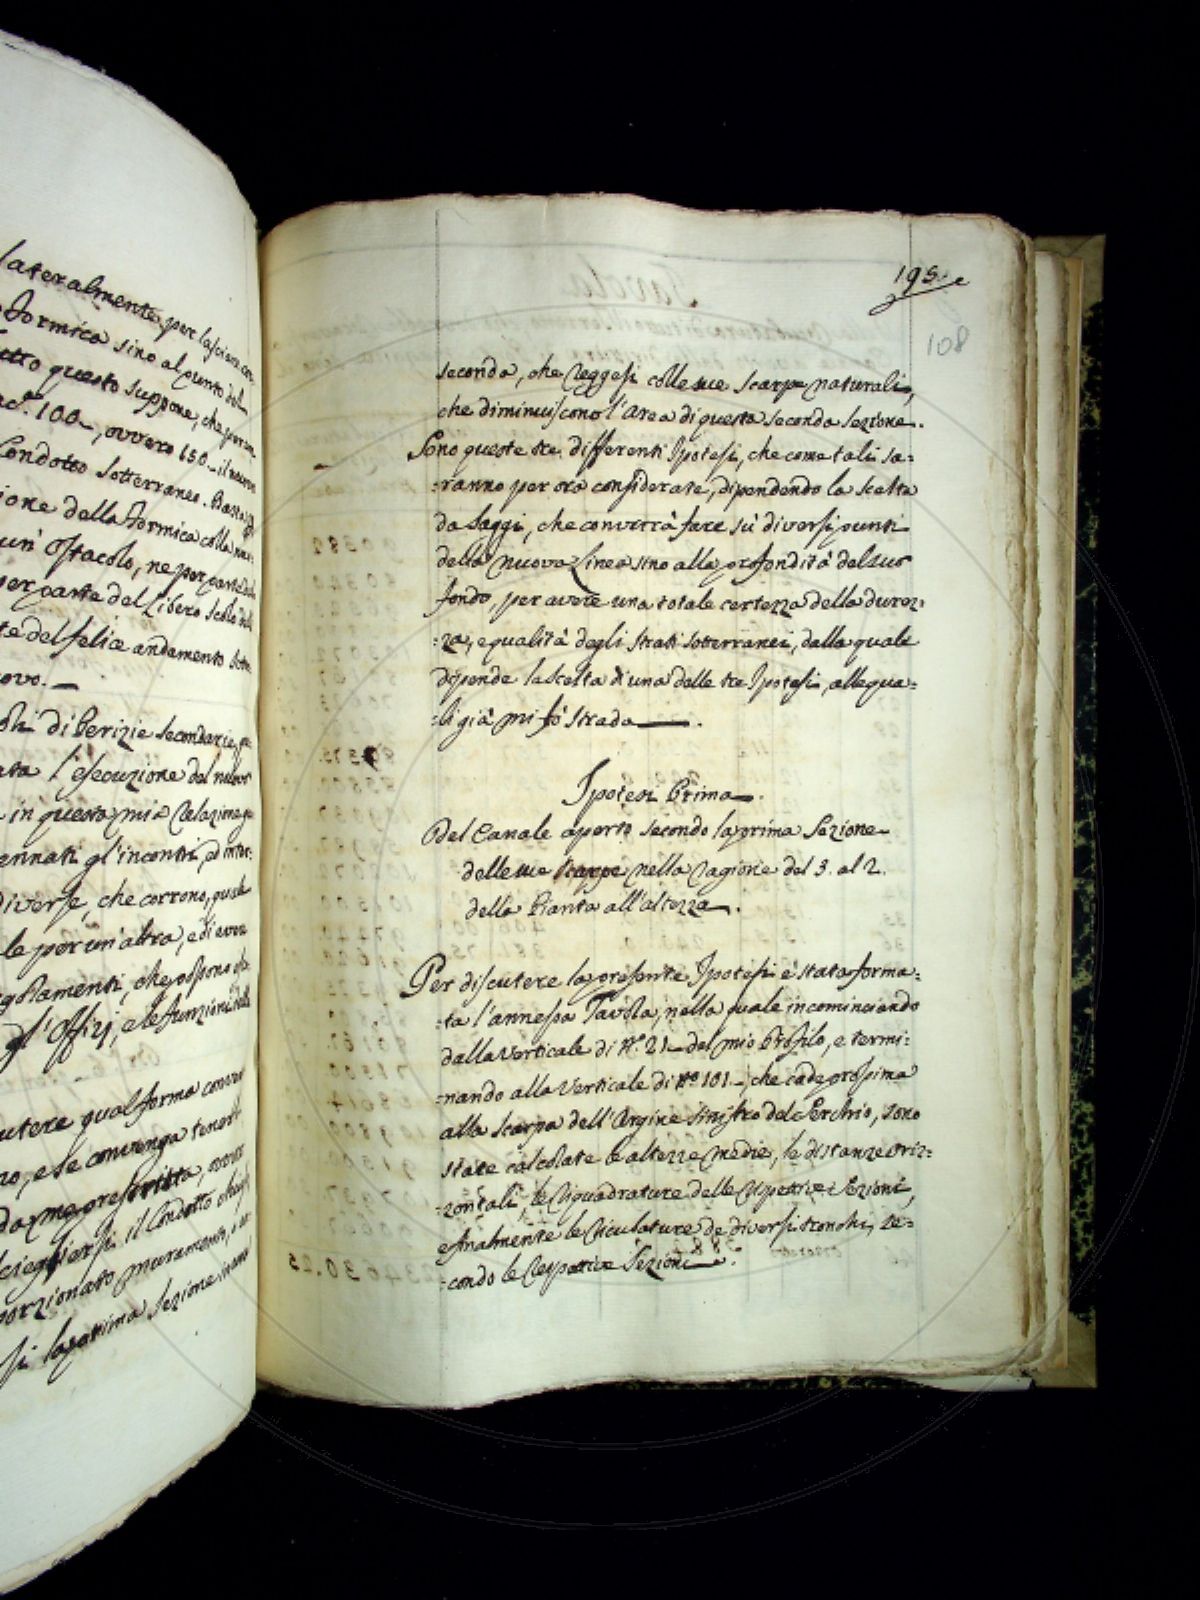 lateralmente, per lasciare
Formica sino al punto del
questo suppone, che per
100.–, ovvero 150.– il nuovo
Condotto Sotterraneo. Basta
della Formica colla
un' ostacolo, ne per parte
per parte del libero Scolo
del felice andamento
di Perizie secondarie,
l'esecuzione del nuovo
in questa mia Relazione
gl'incontri, ed
diverse, che corrono,
per un'altra, e di
che possono
gl'Offizj, e le funzioni
qual forma
e se convenga
prescritta,
il Condotto
muramento,
la prima Sezione
195.
108
seconda, che reggesi colle sue Scarpe naturali,
che diminuiscono l'Area di questa seconda Sezione.
Sono queste tre differenti Ipotesi, che come tali sa=
=ranno per ora considerate, dipendendo la scelta
da Saggi, che converrà fare sù diversi punti
della nuova Linea sino alla profondità del suo
fondo, per avere una totale certezza della durez=
=za, e qualità degli Strati Sotterranei, dalla quale
dipende la scelta di una delle tre Ipotesi, alle qua=
=li già mi fò strada.
Ipotesi Prima.
Del Canale aperto secondo la prima Sezione
delle sue Scarpe nella ragione del 3. al 2.
della Pianta all'altezza.
Per discutere la presente Ipotesi è stata forma=
=ta l'annessa Tavola, nella quale incominciando
dalla Verticale di N.º 21 – del mio Profilo, e termi=
=nando alla Verticale di Nº 101 –, che cade prossima
alla Scarpa dell'Argine sinistro del Serchio, sono
state calcolate le altezze medie, le distanze oriz=
=zontali, le riquadrature delle rispettive Sezioni,
e finalmente le de diversi tronchi, se=
=condo le respettive Sezioni.